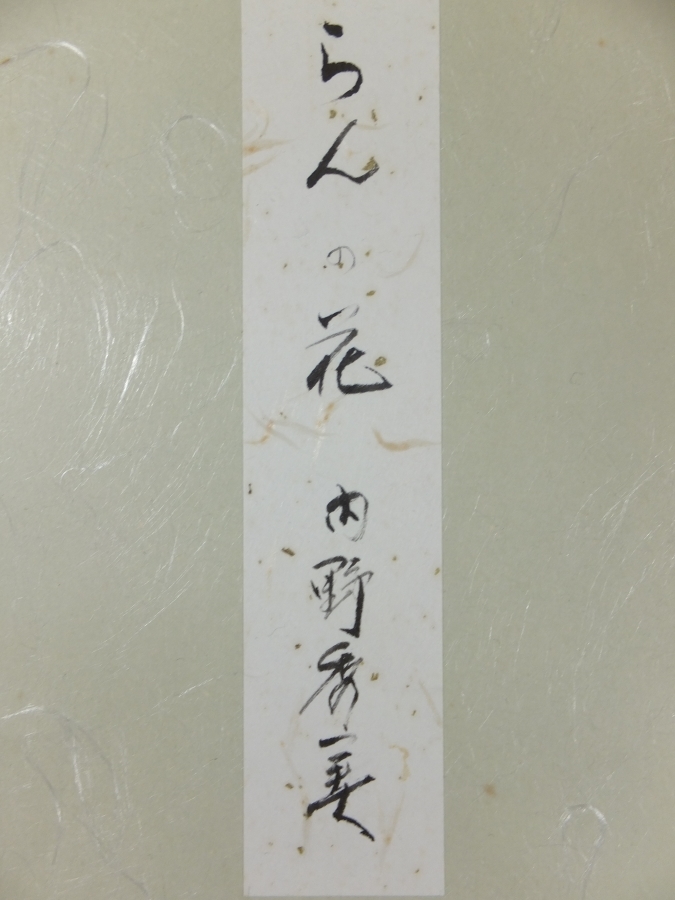 らんの花 内野秀美